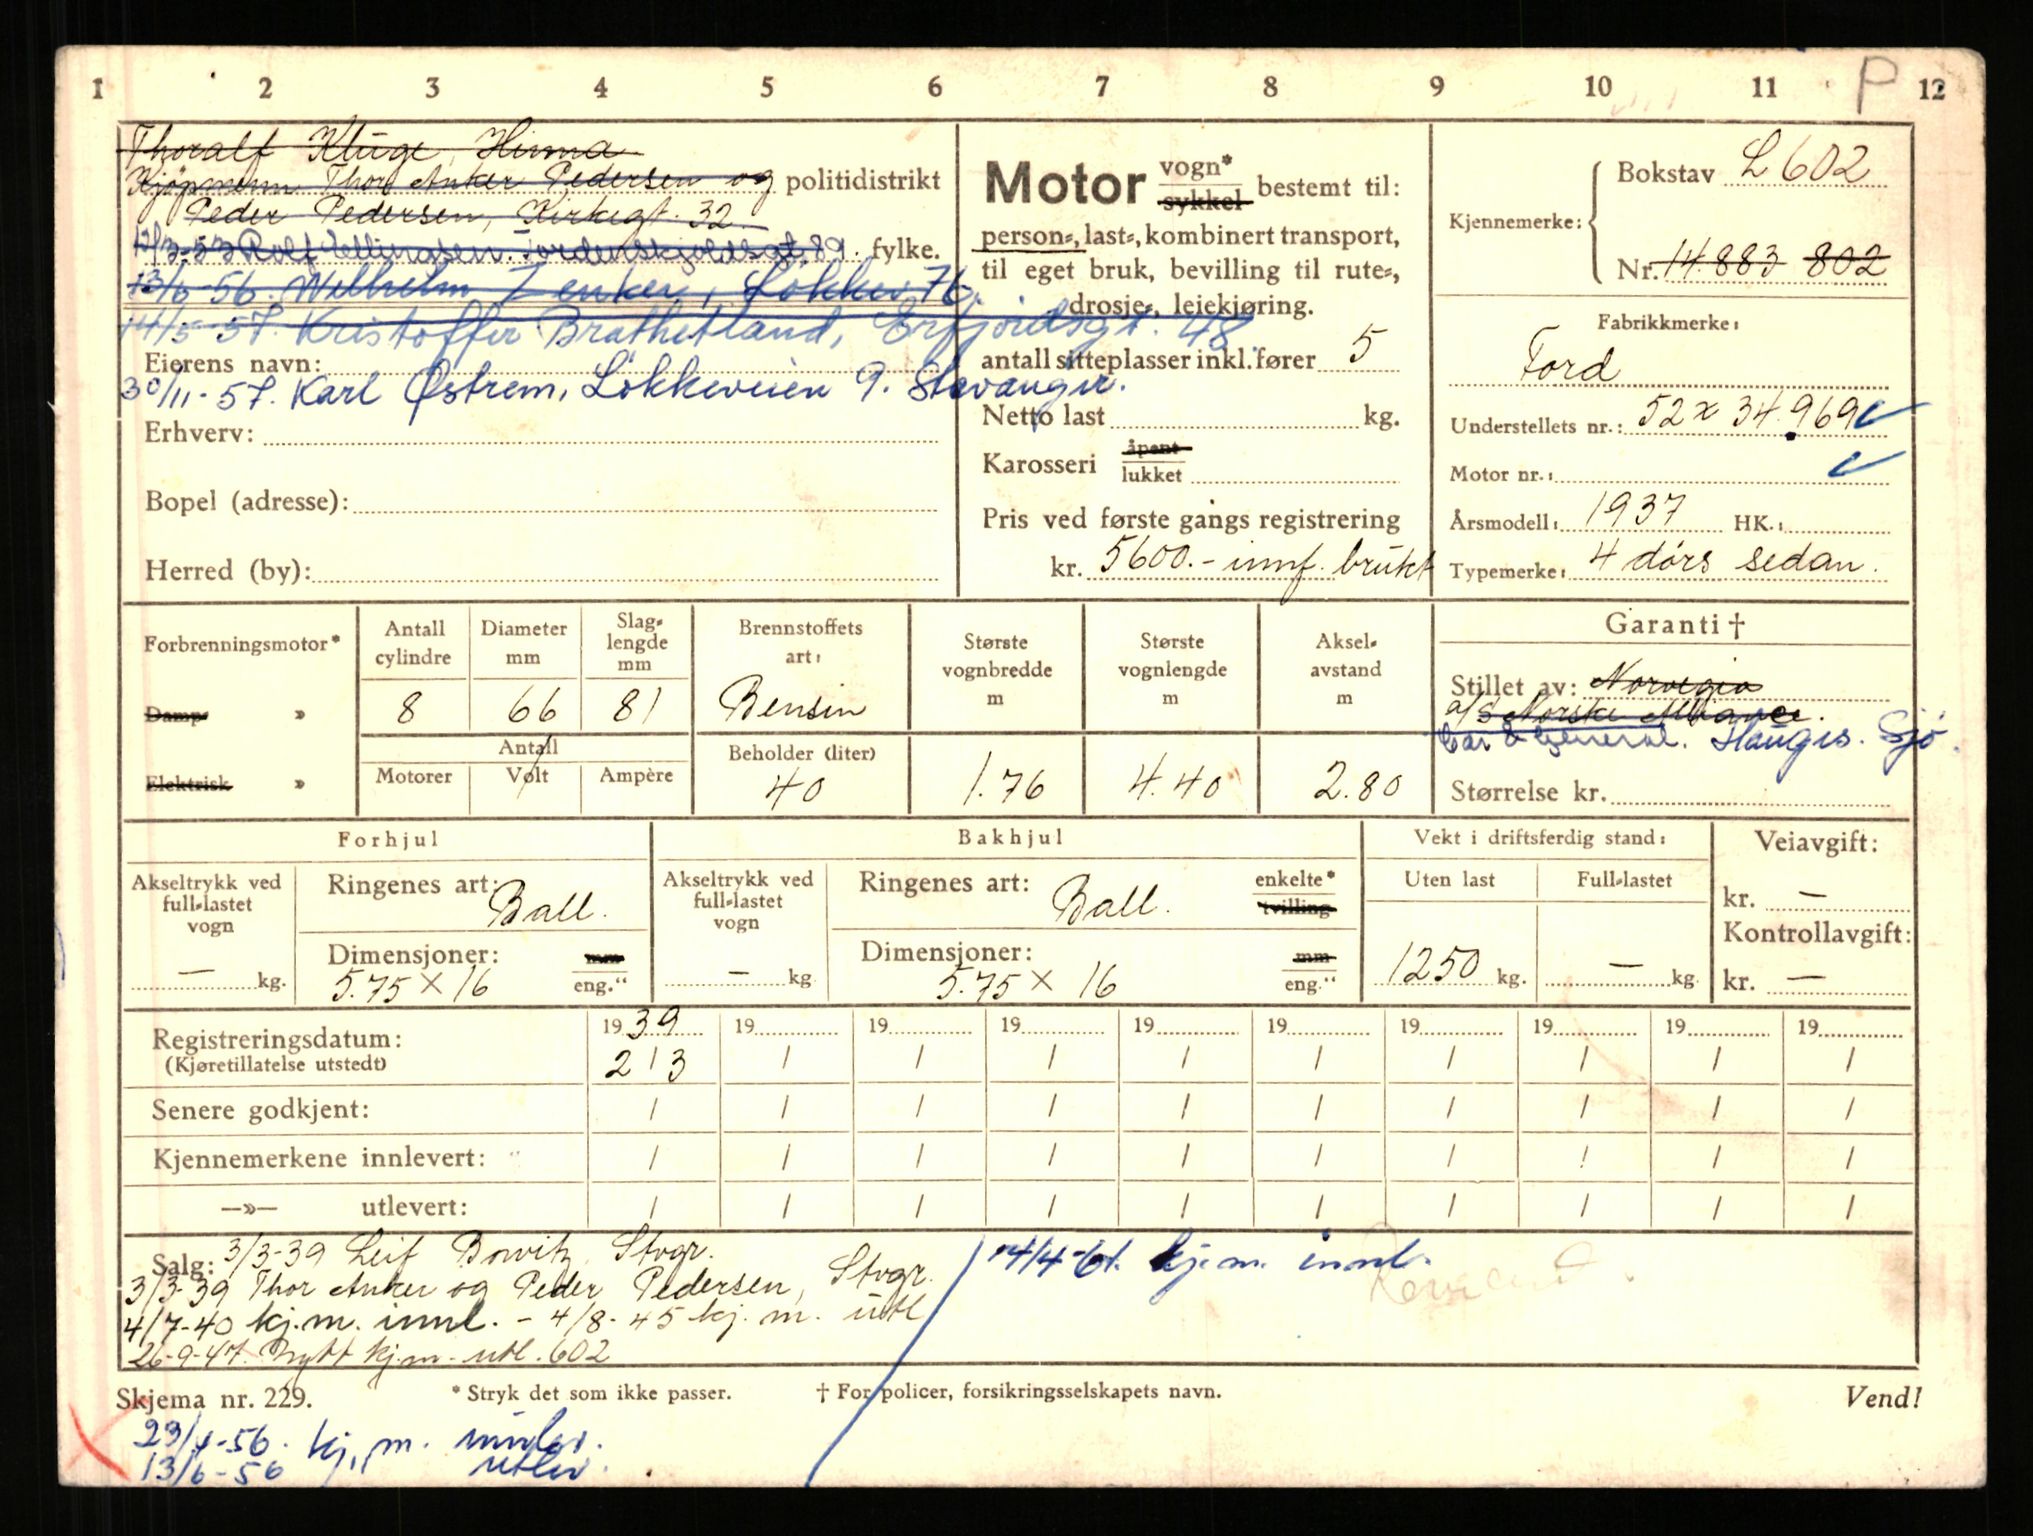 1 2 3 4 5 6 7 8 9 10 11 P 12
Thoralf Kluge, Hinna
Kjøpmenn Thor Anker Pedersen og politidistrikt
Peder Pedersen, Kirkegt. 32
13/3-53 Rolf Tellingsen. Tordenskjoldsgt. 89. fylke.
13/6-56. Wilhelm Zenker, Løkkev. 76.
14/5-57. Kristoffer Brathetland, Erfjordsgt. 48
Eierens navn:
30/11-57. Karl Østrem, Løkkeveien 9. Stavanger.
Erhverv:
Bopel (adresse):
Herred (by):
Motor vogn* sykkel bestemt til:
person-, last-, kombinert transport,
til eget bruk, bevilling til rute-,
drosje-, leiekjøring.
antall sitteplasser inkl. fører 5
Netto last kg.
Karosseri åpent lukket
Pris ved første gangs registrering
kr. 5600.- innf. brukt
Kjennemerke: Bokstav L 602
Nr. 14.883 802
Fabrikkmerke:
Ford
Understellets nr.: 52 x 34.969
Motor nr.:
Årsmodell: 1937 HK.:
Typemerke: 4 dørs sedan.
Forbrenningsmotor*
Damp- »
Elektrisk »
Antall cylindre 8
Diameter mm 66
Slag-lengde mm 81
Antall
Motorer Volt Ampère
Brennstoffets art: Bensin
Beholder (liter) 40
Største vognbredde m 1.76
Største vognlengde m 4.40
Aksel-avstand m 2.80
Garanti †
Stillet av: Norvegia
a/s Norske Alliance.
Car & General. Hauges. Sjø.
Størrelse kr.
Forhjul
Akseltrykk ved full-lastet vogn — kg.
Ringenes art: Ball.
Dimensjoner: 5.75 × 16 mm eng."
Bakhjul
Akseltrykk ved full-lastet vogn — kg.
Ringenes art: Ball. enkelte* tvilling
Dimensjoner: 5.75 × 16 mm eng."
Vekt i driftsferdig stand:
Uten last 1250 kg.
Full-lastet — kg.
Veiavgift:
kr. —
Kontrollavgift:
kr. —
Registreringsdatum: 1939 19 19 19 19 19 19 19 19 19
(Kjøretillatelse utstedt) 2 / 3 / / / / / / / / /
Senere godkjent: / / / / / / / / / /
Kjennemerkene innlevert: / / / / / / / / / /
—»— utlevert: / / / / / / / / / /
Salg: 3/3-39 Leif Stvgr.
3/3-39 Thor Anker og Peder Pedersen, Stvgr.
4/7-40 kj.m. innl. - 4/8-45 kj. m. utl
26-9-47. Nytt kj.m. utl. 602
14/4-61. kj.m. innl.
Skjema nr. 229. * Stryk det som ikke passer. † For policer, forsikringsselskapets navn. Vend!
23/4-56. kj. m. innlev.
13/6-56 utlev.